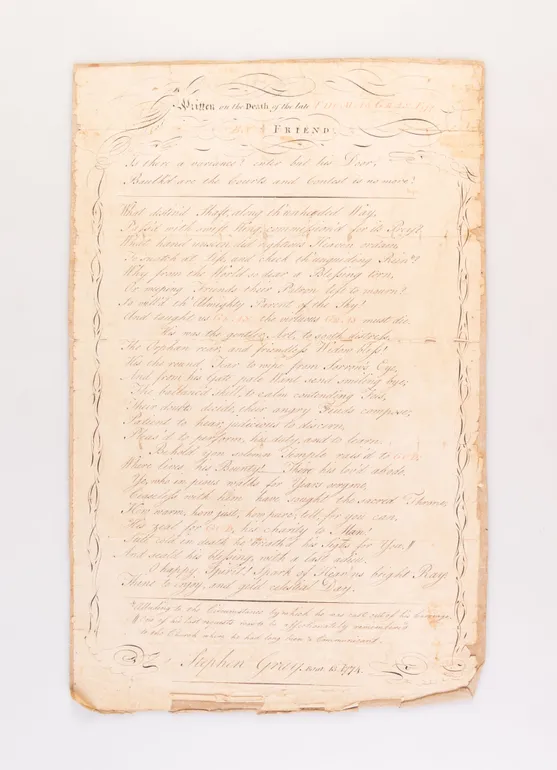 Written on the Death of the late
FRIEND.
Is there a variance? enter but his Door,
Baulk'd are the Courts and Contest is no more!
What destin'd Shaft, along th' unheeded Way,
with swift Wing commission'd for its Prey?
What hand unseen did righteous Heaven ordain
To snatch at Life, and check th' unguiding Rein?*
Why from the World so dear a Blessing torn,
Or weeping Friends their Patron left to mourn?
So will'd th' Almighty Parent of the Sky!
And taught us the virtuous must die.
His was the gentle Art, to sooth distress,
The Orphan rear, and friendless Widow bless!
His the round Tear to wipe from Sorrow's Eye,
And from his Gate pale Want send smiling bye;
The balanc'd skill, to calm contending Foes,
Their doubts decide, their angry Feuds compose,
Patient to hear, judicious to discern,
Pleas'd to perform, his duty, and to learn.
Behold yon solemn Temple rais'd to
Where lives his Bounty! There his lov'd abode.
Ye, who in pious walks for Years
Ceaseless with him have sought the sacred Throne,
How warm, how just, how pure, tell, for you can,
His zeal for his charity to Man!
in death he breath'd his Sighs for You,
And seal'd his blessing, with a last adieu.
O happy Spirit! Spark of Heav'ns bright Ray.
Thine to enjoy, and yield celestial Day.
*Alluding to the Circumstance by which he was cast out of his Carriage
One of his last requests was to be affectionately remember'd
to the Church where he had long been a Communicant.
Stephen Gray 13, 1774.